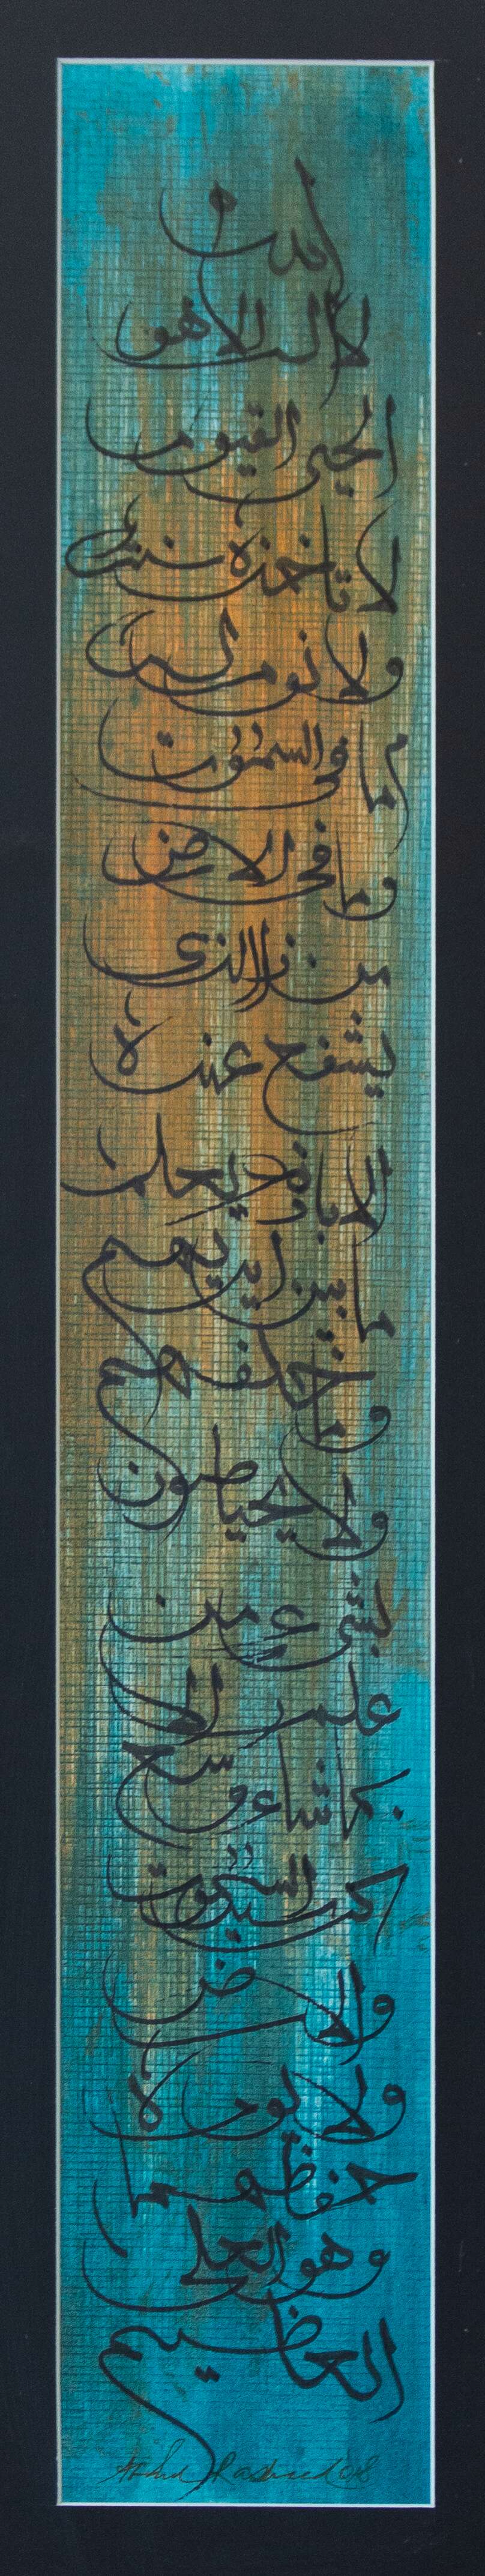 الله
لا اله الا هو
الحي القيوم
لا تاخذه سنة
ولا نوم له
ما في السموت
وما في الارض
من ذا الذي
يشفع عنده
الا باذنه يعلم
ما بين ايديهم
وما خلفهم
ولا يحيطون
بشيء من
علمه الا
بما شاء وسع
كرسيه السموت
والارض
ولا يوده
حفظهما
وهو العلي
العظيم